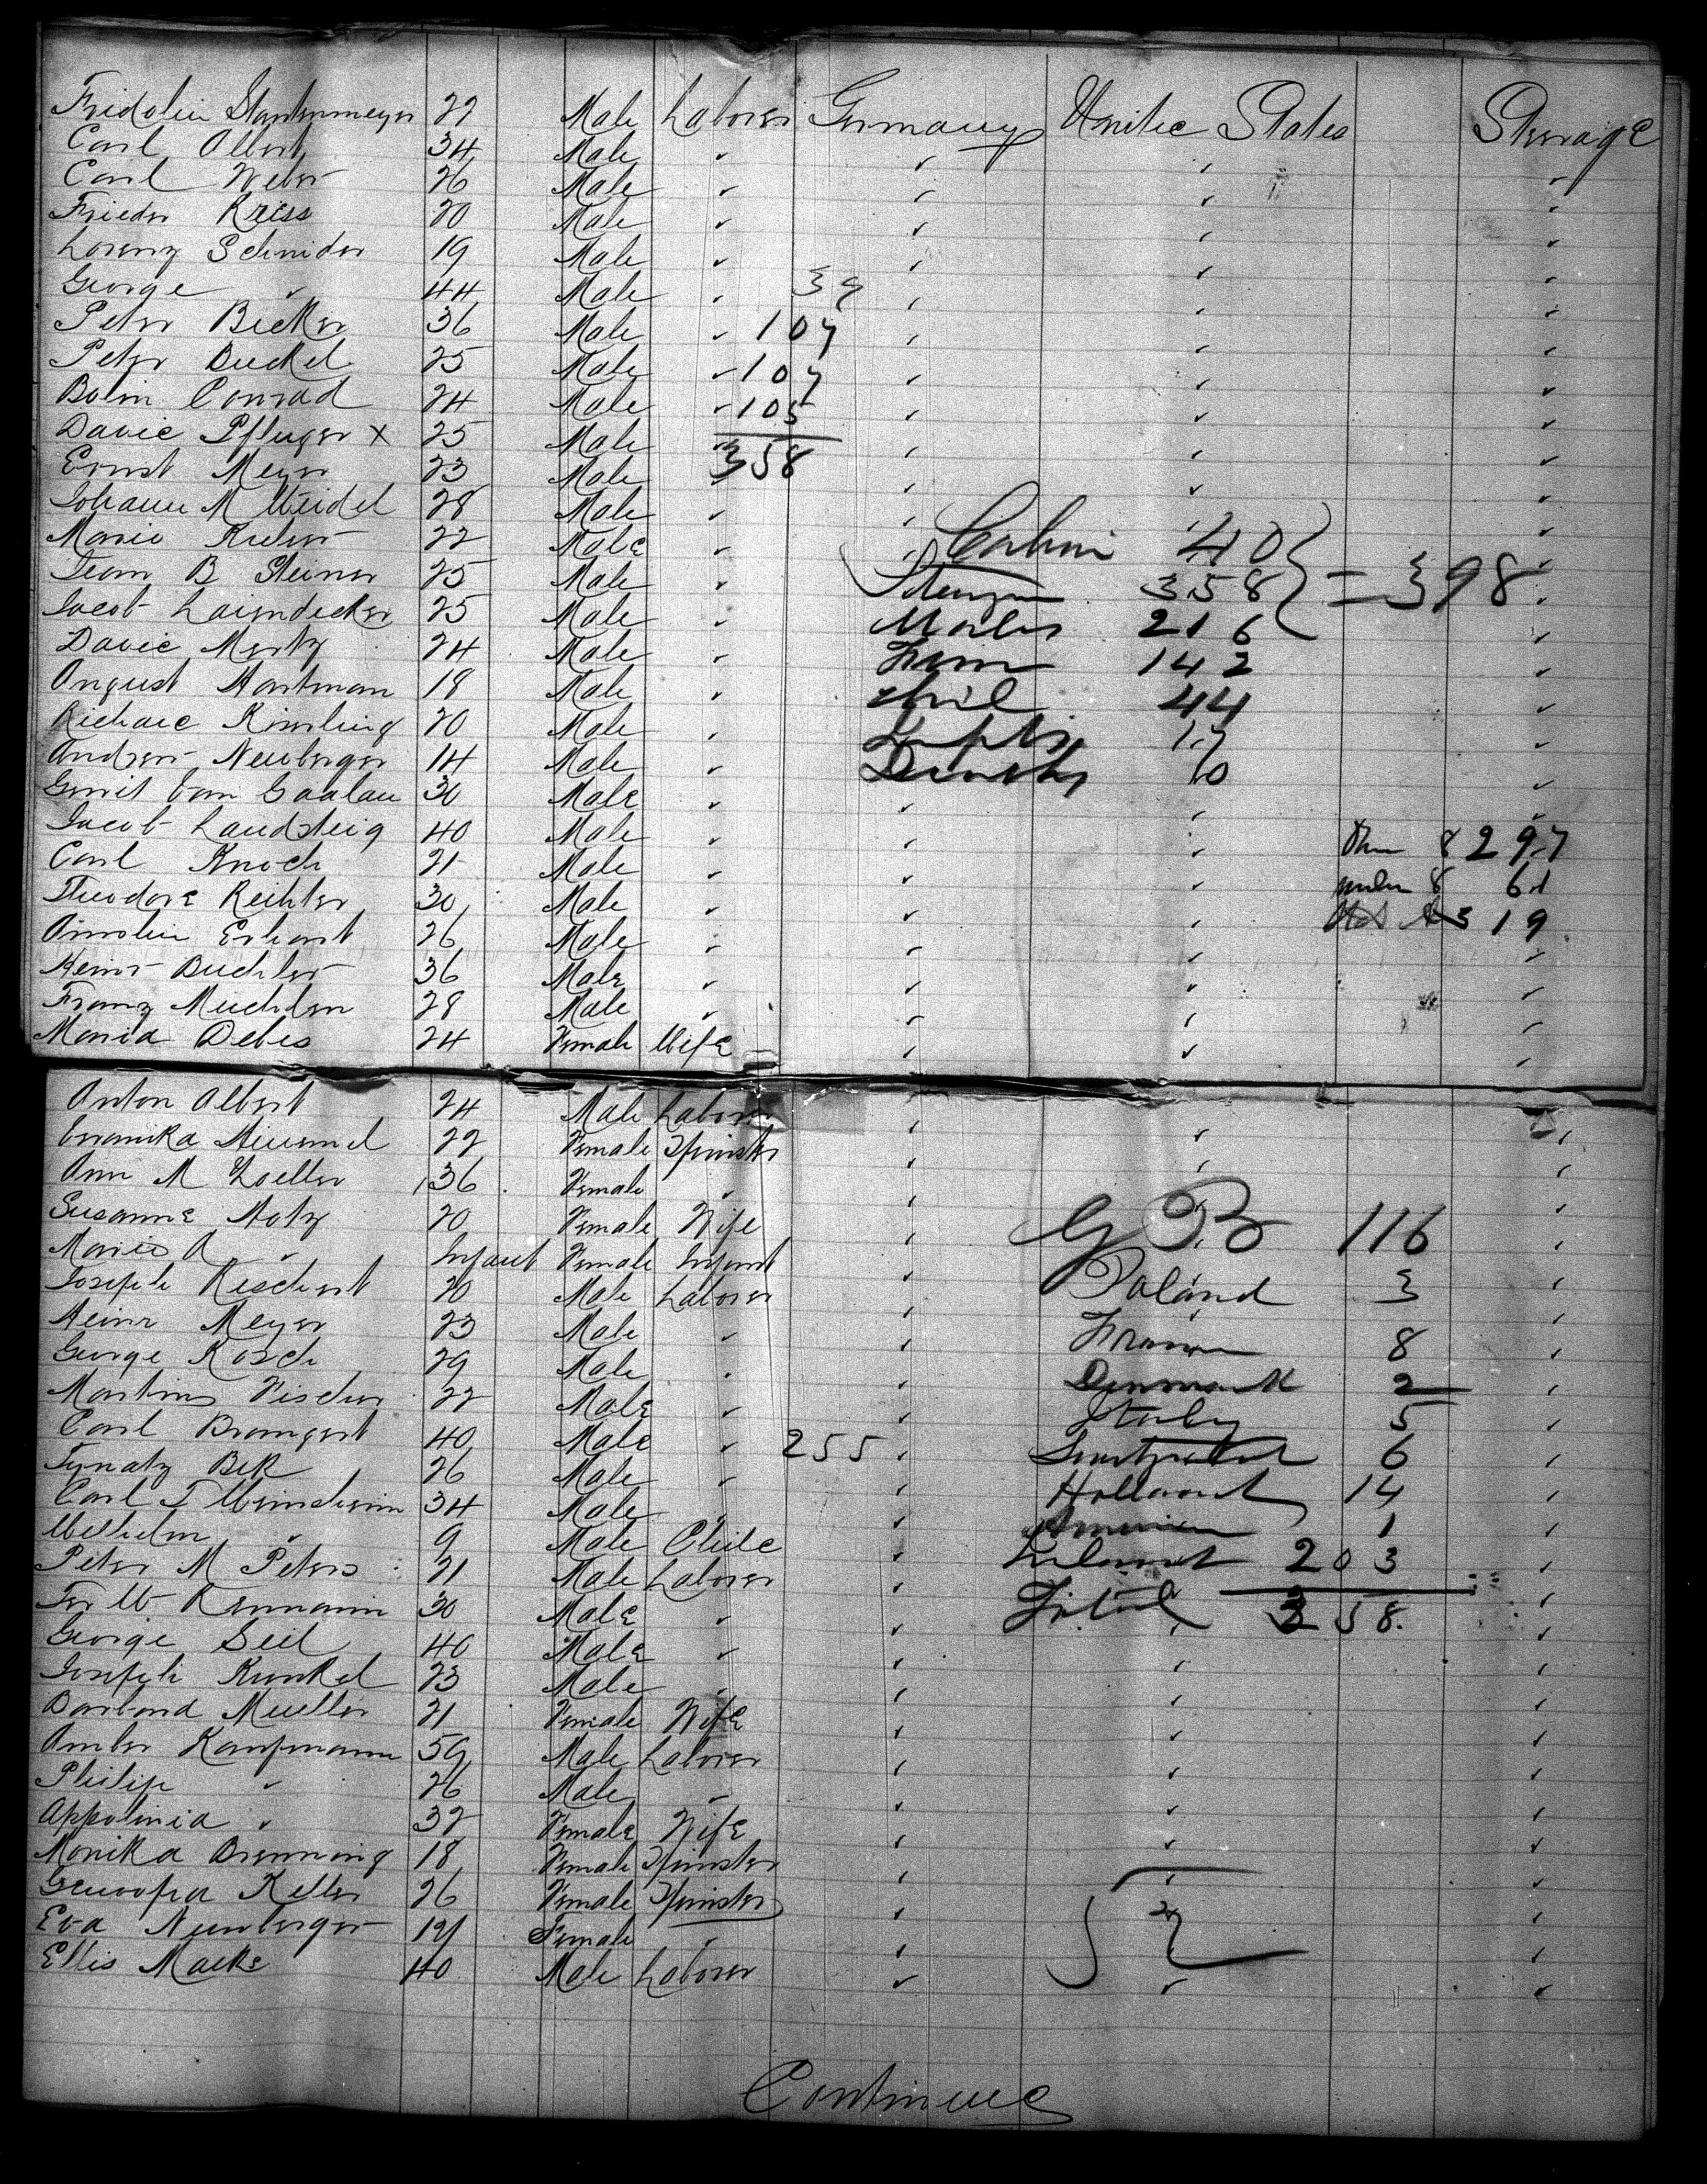 Fridolin Stantenmeyer 22 Male Laborer Germany United States Steerage
Carl Olbert 34 Male " " " "
Carl Weber 26 Male " " " "
Frieder Kriss 20 Male " " " "
Lorenz Schnider 19 Male " " " "
George " 44 Male " 39 " " "
Peter Becker 36 Male " 107 " " "
Peter Buckel 25 Male " 107 " " "
Conrad 24 Male " 105 " " "
David Pfluger X 25 Male " 358 " " "
Ernst Meyer 23 Male " " " "
Johann M Weidel 28 Male " " " "
Marie 22 Male " Cabin 40
B Steiner 25 Male " 358 = 398
Jacob Laiendecker 25 Male " Males 216
David Mertz 24 Male " 142 "
August Hartman 18 Male " 44 "
Richard Kinsling 20 Male " 17 "
Andrer Neuberger 14 Male " 10 "
Gerrit van Gaalau 30 Male " " " "
Jacob Landsteig 40 Male " " " 8 297
Carl Knoch 21 Male " " " under 8 61
Theodore Reihler 30 Male " " " 319
Erhart 26 Male " " " "
Heinr Buehler 36 Male " " " "
Franz Muehlen 28 Male " " " "
Maria Debes 24 Female Wife " " "
Anton Albert 24 Male Laborer " " "
22 Female Spinster " " "
Ann M Zoeller 36 Female " " "
Susanne Motz 20 Female Wife " G B 116 "
Marie A " Infant Female Infant " "
Joseph Reschert 20 Male Laborer " Poland 3 "
Heinr Meyer 23 Male " " France 8 "
George Kosch 29 Male " " Denmark 2 "
Martin Fischer 22 Male " " Italy 5 "
Carl Bromgert 40 Male " 255 " 6 "
Ignatz Bek 26 Male " " Holland 14 "
Carl 34 Male " " 1 "
Wilhelm " 9 Male Child " 203 "
Peter M Peters 21 Male Laborer " Total 358 "
30 Male " " " "
George Seil 40 Male " " " "
Joseph Kunkel 23 Male " " " "
Barbara Mueller 21 Female Wife " " "
Kaufmann 59 Male Laborer " " "
Philip " 26 Male " " " "
Appolinia " 32 Female Wife " " "
Monika Brenning 18 Female Spinster " " "
Genovofa Keller 26 Female Spinster " " "
Eva Neuberger 17 Female " " "
Ellis Macke 40 Male Laborer " " "
Continued